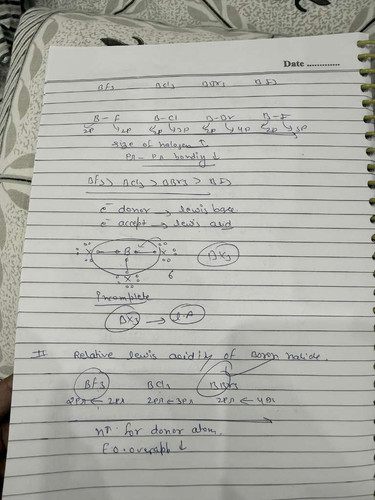 Date .............
BF3 BCl3 BBr3 BI3
B-F B-Cl B-Br B-I
2p 2p 2p 3p 2p 4p 2p 5p
size of halogen ↑
Pπ - Pπ bonding ↓
BF3 > BCl3 > BBr3 > BI3
e⁻ donor → lewis base
e⁻ accept → lewis acid
X B X BX3
X 6
Incomplete
BX3 → L.A
II Relative lewis acidity of Boron halide.
BF3 BCl3 BBr3
2Pπ ← 2Pπ 2Pπ ← 3Pπ 2Pπ ← 4Pπ
n↑ for donor atom.
overlap ↓